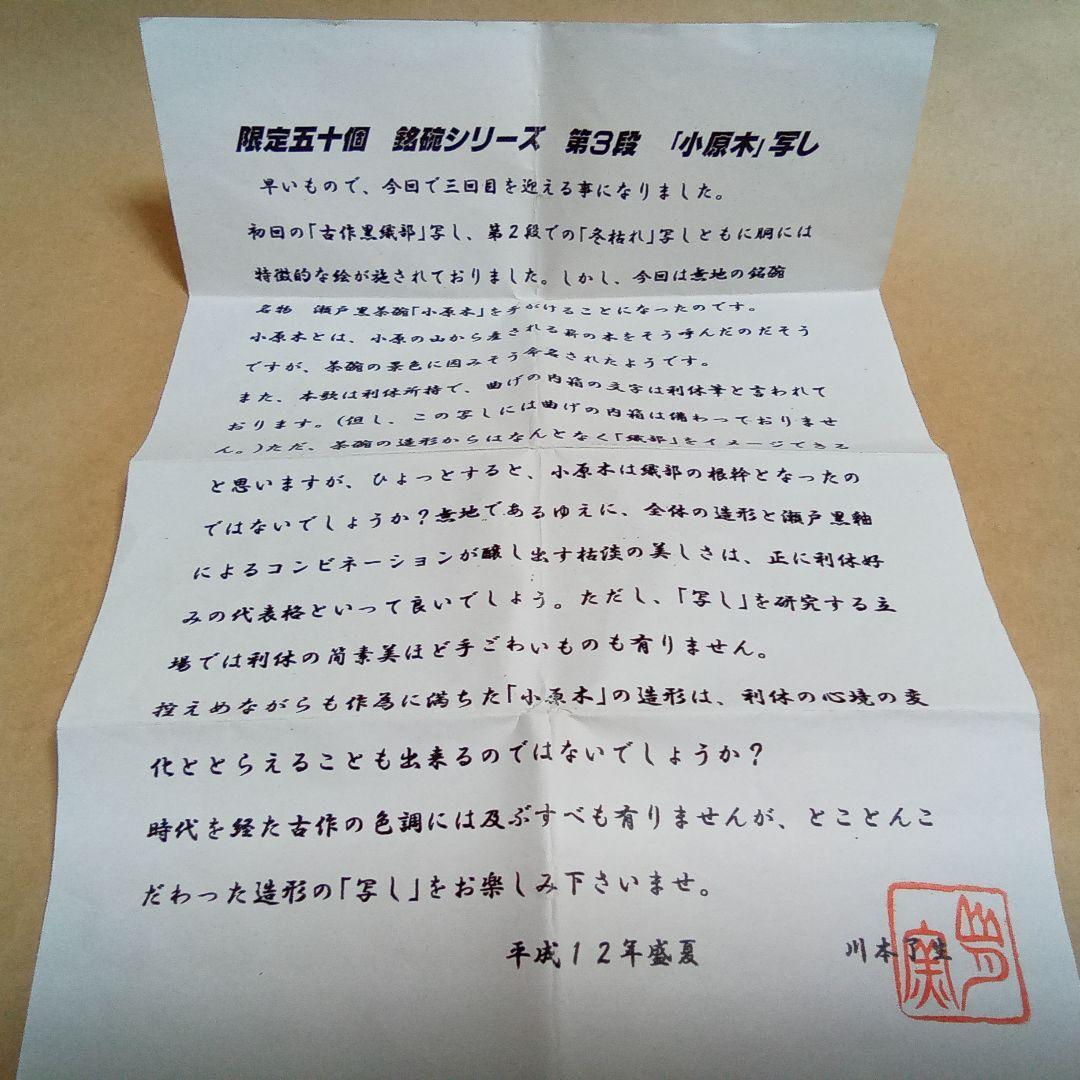 限定五十個 銘碗シリーズ 第3段 「小原木」写し
早いもので、今回で三回目を迎える事になりました。
初回の「古作黒織部」写し、第2段での「冬枯れ」写しともに胴には
特徴的な絵が施されておりました。しかし、今回は無地の銘碗
名物 瀬戸黒茶碗「小原木」を手がけることになったのです。
小原木とは、小原の山から産される薪の木をそう呼んだのだそう
ですが、茶碗の景色に因みそう命名されたようです。
また、本歌は利休所持で、曲げの内箱の文字は利休筆と言われて
おります。(但し、この写しには曲げの内箱は備わっておりませ
ん。)ただ、茶碗の造形からはなんとなく「織部」をイメージできる
と思いますが、ひょっとすると、小原木は織部の根幹となったの
ではないでしょうか?無地であるゆえに、全体の造形と瀬戸黒釉
によるコンビネーションが醸し出す枯淡の美しさは、正に利休好
みの代表格といって良いでしょう。ただし、「写し」を研究する立
場では利休の簡素美ほど手ごわいものも有りません。
控えめながらも作為に満ちた「小原木」の造形は、利休の心境の変
化ととらえることも出来るのではないでしょうか?
時代を経た古作の色調には及ぶすべも有りませんが、とことんこ
だわった造形の「写し」をお楽しみ下さいませ。
平成12年盛夏 川本了生